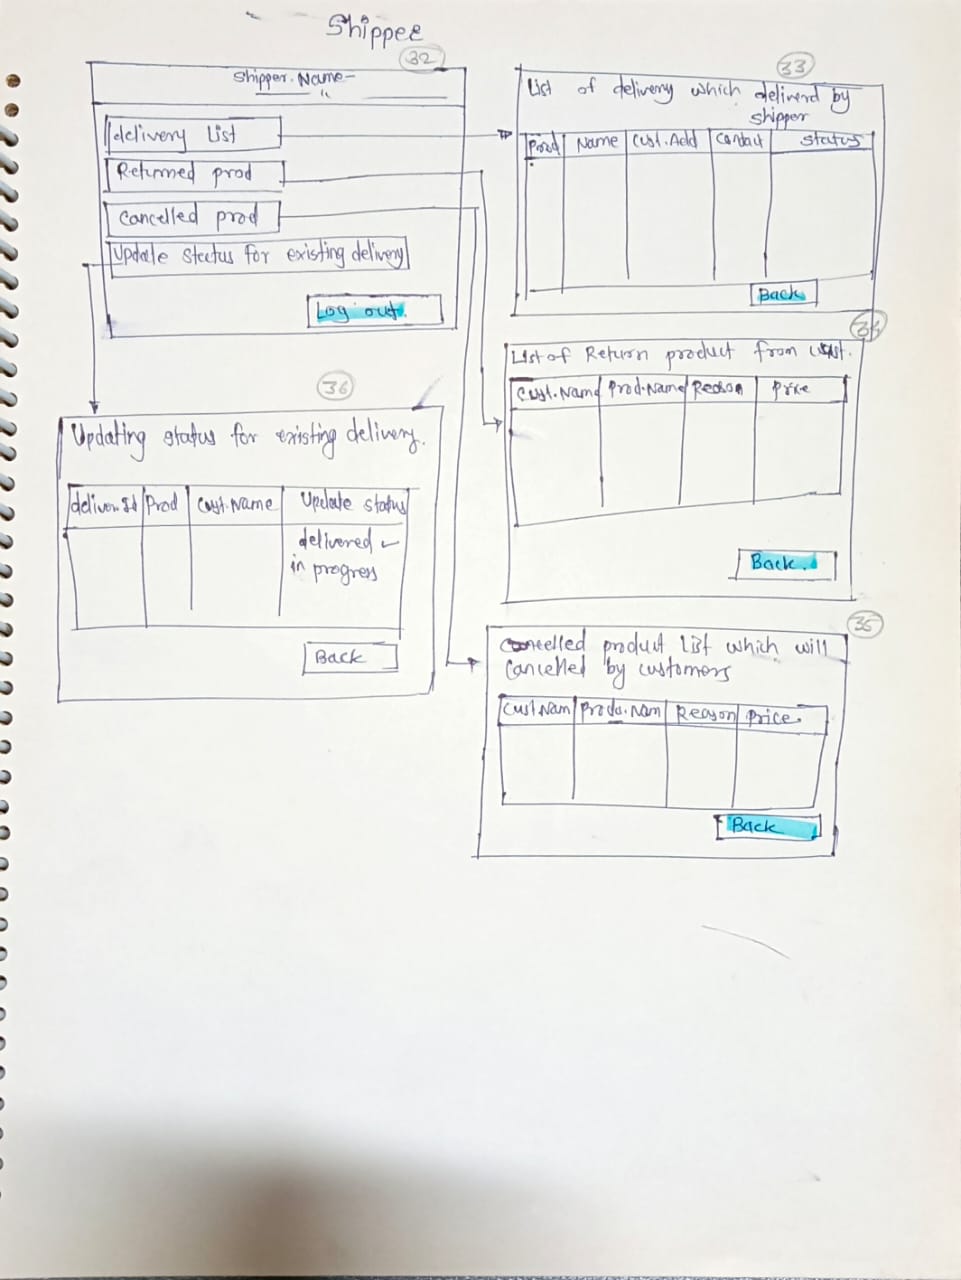 Shipper
32
Shipper. Name -
delivery List
Returned prod
Cancelled prod
Update status for existing delivery
Log out.
33
List of delivery which deliverd by
shipper
Prod Name Cust.Add Contact Status
Back
34
List of Return product from cust.
Cust.Name Prod.Name Reason Price
Back.
36
Updating status for existing delivery.
Prod Cust.Name Update status
delivered ✓
in progress
Back
35
Cancelled product List which will
Cancelled by customers
Cust.Nam Produ.Nam Reason Price.
Back